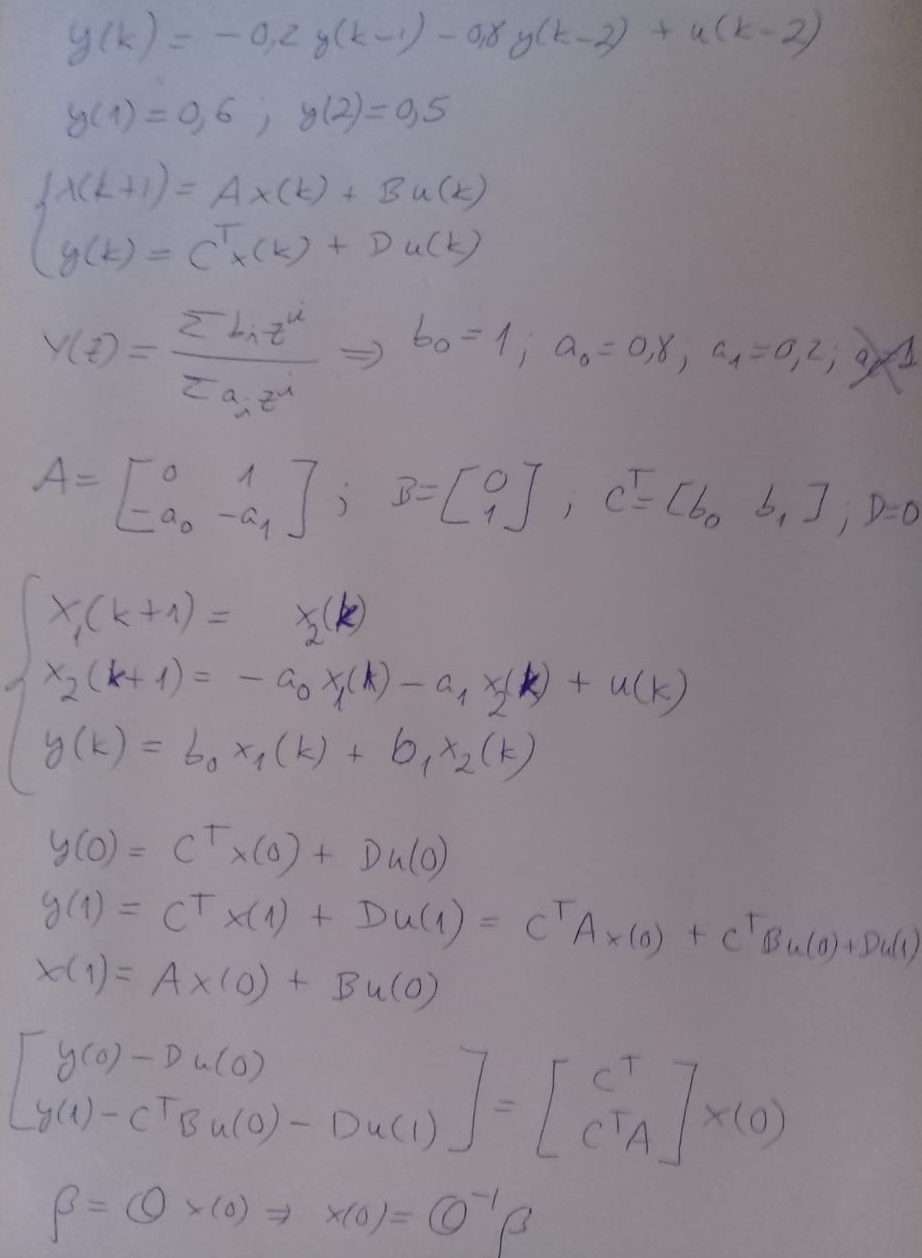 y(k) = -0,2 y(k-1) - 0,8 y(k-2) + u(k-2)
y(1) = 0,6 ; y(2) = 0,5
{ x(k+1) = A x(k) + B u(k)
y(k) = Cᵀx(k) + D u(k)
Y(z) = Σ bᵢ zⁱ / Σ aᵢ zⁱ ⇒ b₀ = 1 ; a₀ = 0,8 ; a₁ = 0,2 ;
A = [ 0 1 ; -a₀ -a₁ ] ; B = [ 0 ; 1 ] ; Cᵀ = [b₀ b₁] ; D=0
{ x₁(k+1) = x₂(k)
x₂(k+1) = - a₀ x₁(k) - a₁ x₂(k) + u(k)
y(k) = b₀ x₁(k) + b₁ x₂(k)
y(0) = Cᵀ x(0) + Du(0)
y(1) = Cᵀ x(1) + Du(1) = CᵀA x(0) + CᵀBu(0) + Du(1)
x(1) = A x(0) + Bu(0)
[ y(0) - Du(0) ; y(1) - CᵀBu(0) - Du(1) ] = [ Cᵀ ; CᵀA ] x(0)
β = O x(0) ⇒ x(0) = O⁻¹ β